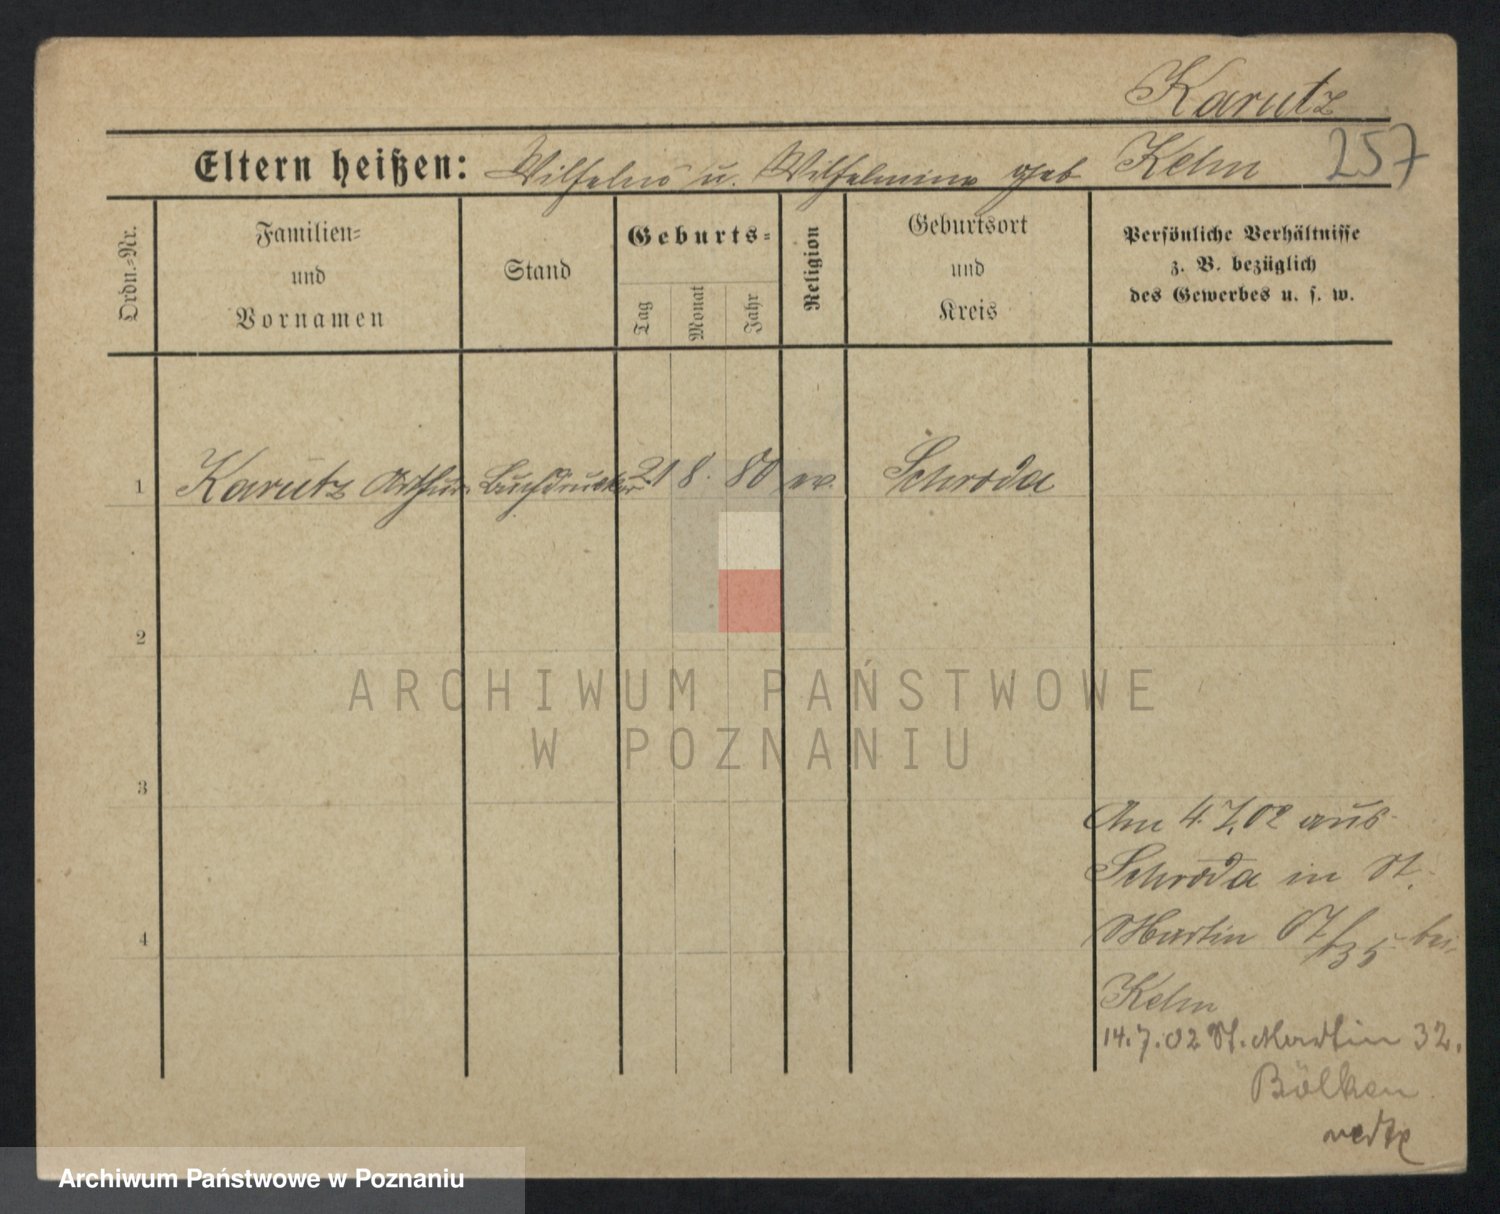 Karutz
Eltern heißen: Wilhelm u. Wilhelmine geb Kelm 257
Ordn.=Nr.
Familien=
und
Vornamen
Stand
Geburts=
Tag
Monat
Jahr
Religion
Geburtsort
und
Kreis
Persönliche Verhältnisse
z. B. bezüglich
des Gewerbes u. s. w.
1 Karutz Arthur Buchdrucker 21 8. 80 ev. Schroda
2
3
4
ARCHIWUM PAŃSTWOWE
W POZNANIU
Am 4.7.02 aus
Schroda in St.
Martin 67/35 bei
Kelm
14.7.02 St. Martin 32.
Bölken
Archiwum Państwowe w Poznaniu